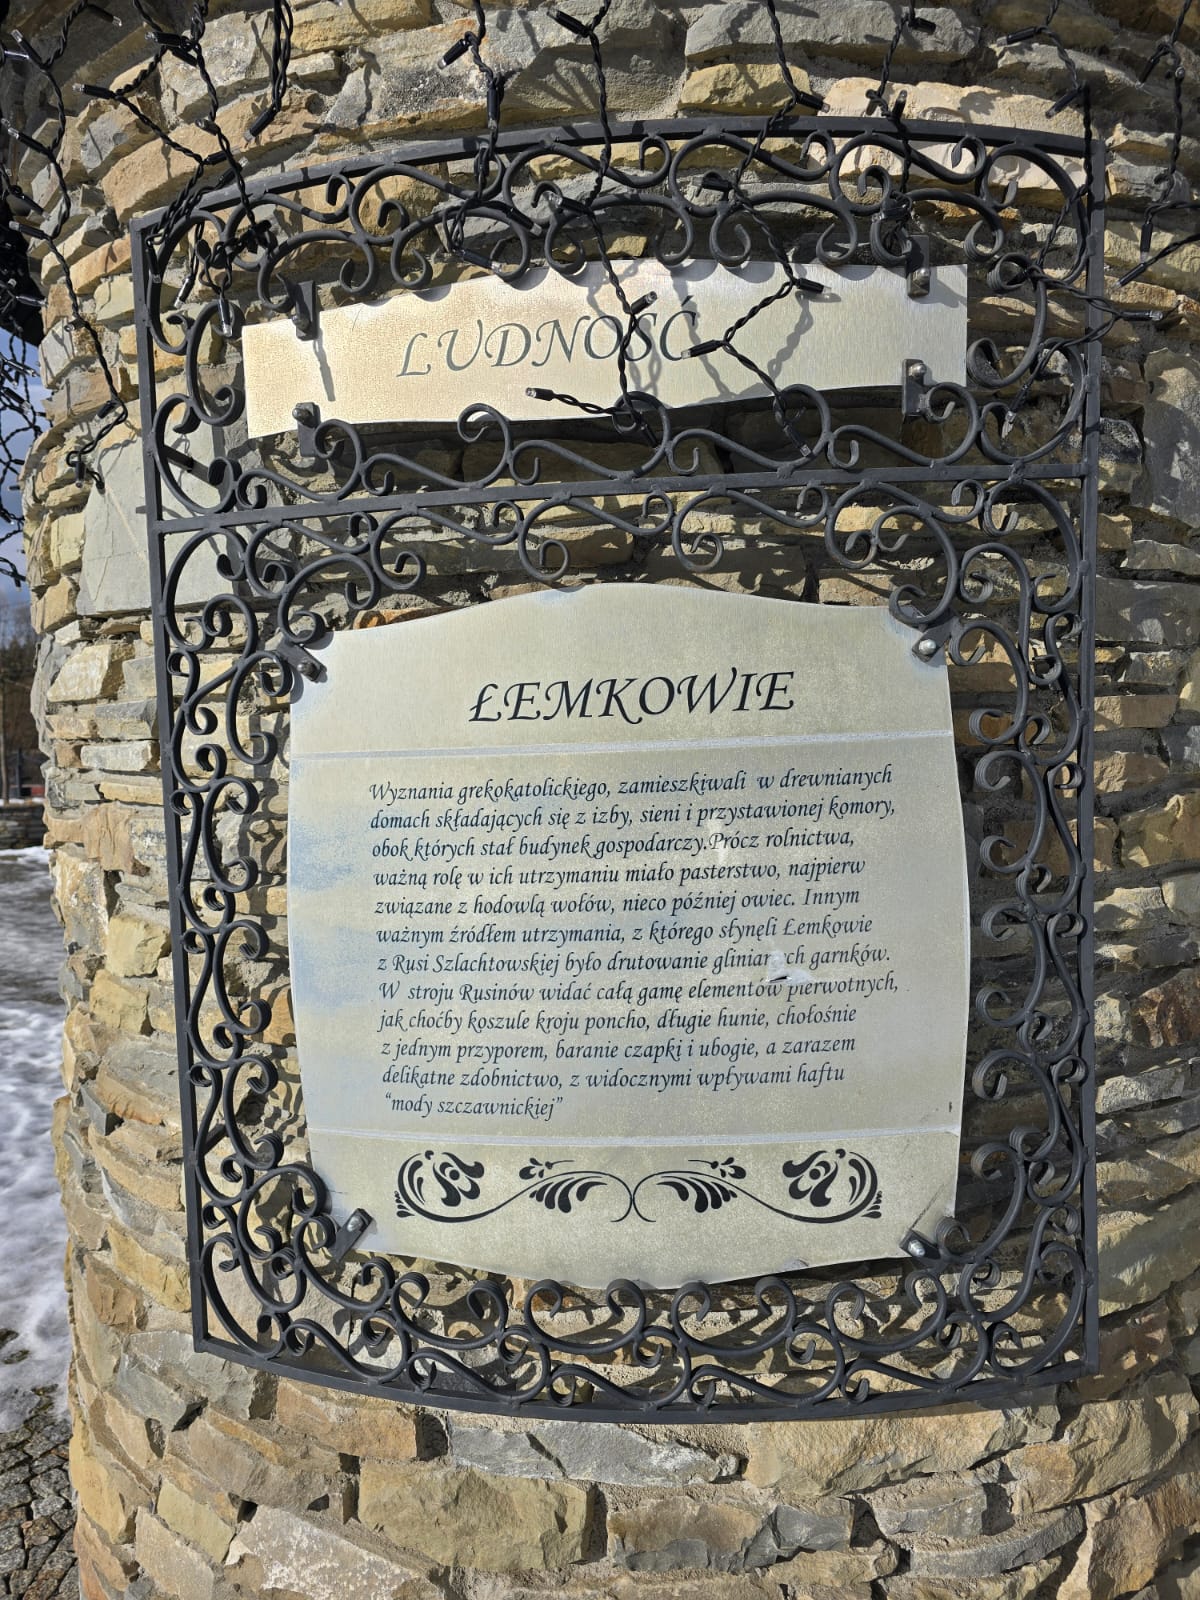 LUDNOŚĆ
ŁEMKOWIE
Wyznania grekokatolickiego, zamieszkiwali w drewnianych
domach składających się z izby, sieni i przystawionej komory,
obok których stał budynek gospodarczy.Prócz rolnictwa,
ważną rolę w ich utrzymaniu miało pasterstwo, najpierw
związane z hodowlą wołów, nieco później owiec. Innym
ważnym źródłem utrzymania, z którego słynęli Łemkowie
z Rusi Szlachtowskiej było drutowanie glinianych garnków.
W stroju Rusinów widać całą gamę elementów pierwotnych,
jak choćby koszule kroju poncho, długie hunie, chołośnie
z jednym przyporem, baranie czapki i ubogie, a zarazem
delikatne zdobnictwo, z widocznymi wpływami haftu
“mody szczawnickiej”